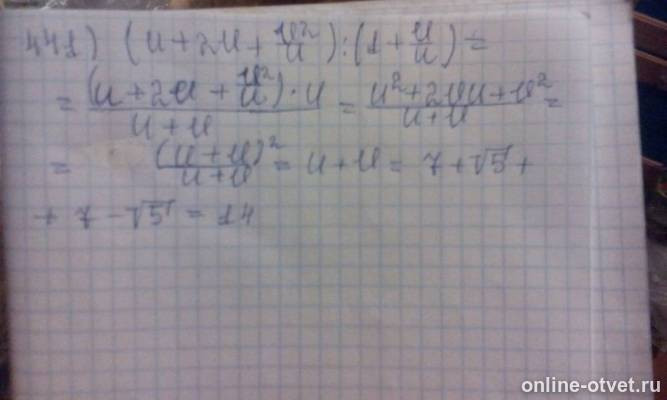 441) (u + 2u + u²/u) : (1 + u/u) =
= (u + 2u + u²/u) · u / u + u = u² + 2uu + u² / u + u =
= (u + u)² / u + u = u + u = 7 + √5 +
+ 7 - √5 = 14
online-otvet.ru